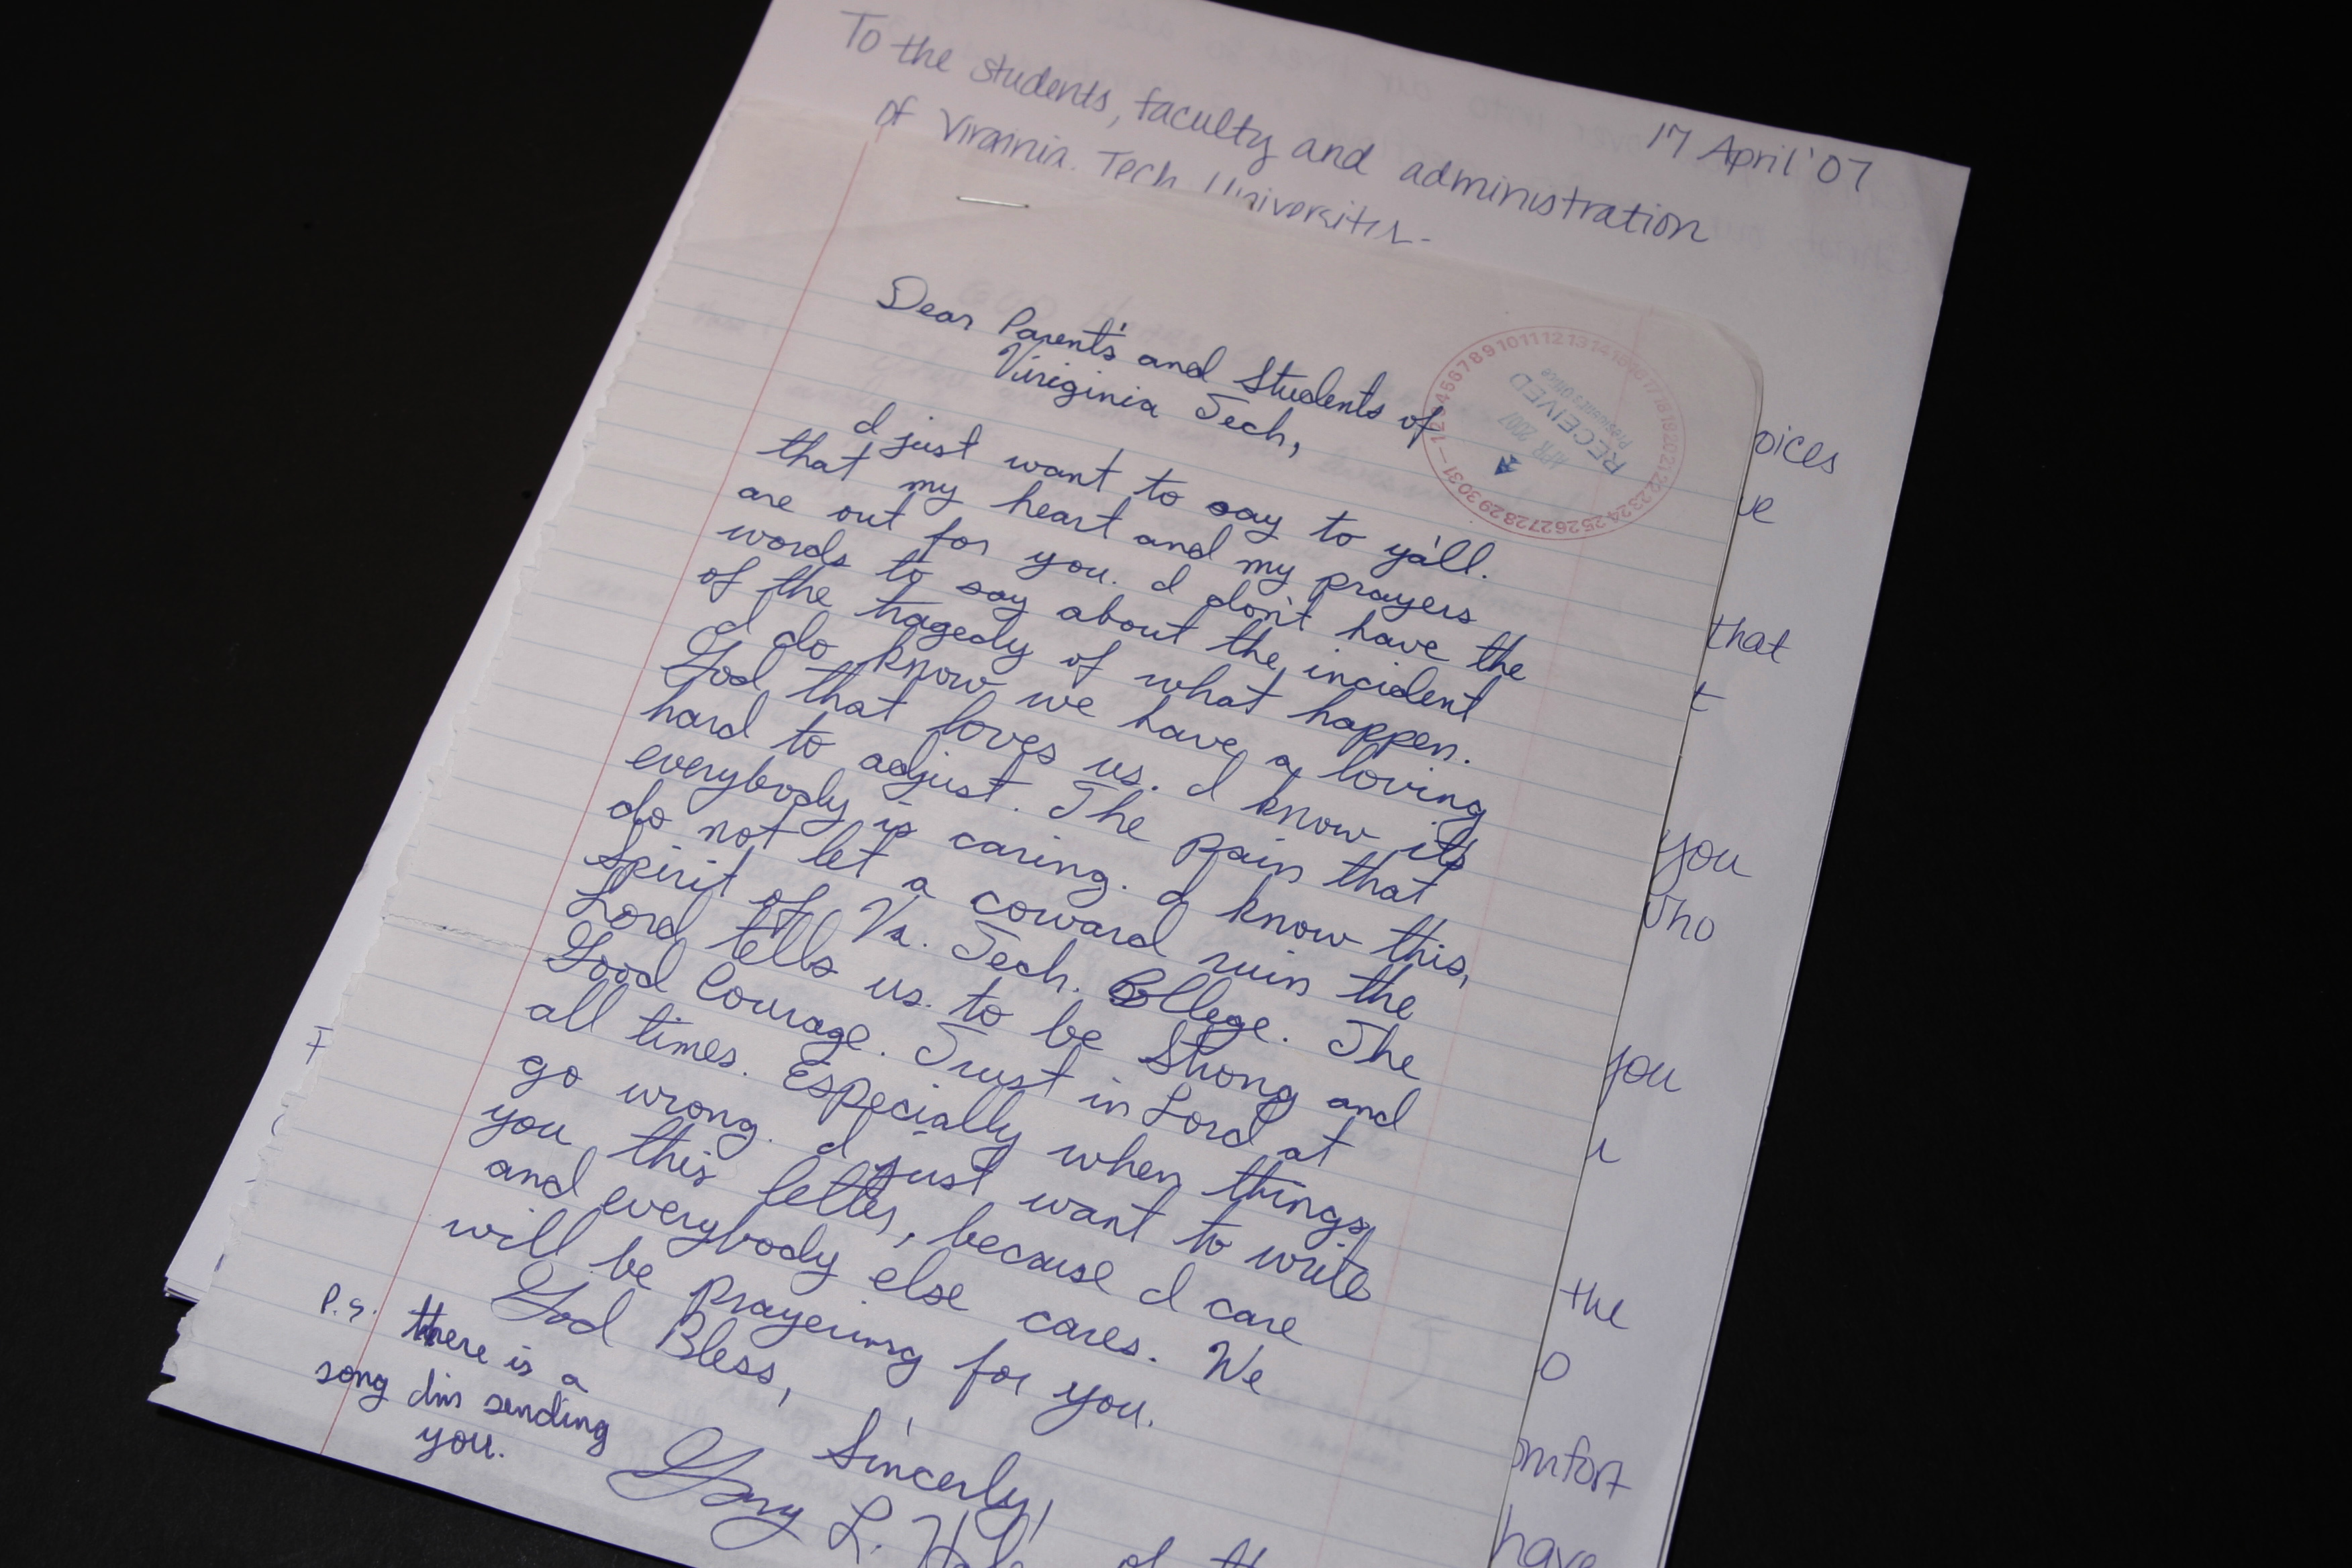 To the students, faculty and administration
of Virginia Tech University-
17 April '07
Dear Parent's and Students of
Viriginia Tech,
I just want to say to ya'll.
that my heart and my prayers
are out for you. I don't have the
words to say about the incident
of the tragedy of what happen.
I do know we have a loving
God that loves us. I know its
hard to adjust. The pain that
everybody is caring. I know this,
do not let a coward ruin the
Spirit of Va. Tech. College. The
Lord tells us to be Strong and
Good Courage. Trust in Lord at
all times. Especially when things
go wrong. I just want to write
you this letter, because I care
and everybody else cares. We
will be prayering for you.
God Bless,
Sincerly,
P.S. there is a
song I'm sending
you.
L.
of
1 2 3 4 5 6 7 8 9 10 11 12 13 14 15 16 17 18 19 20 21 22 23 24 25 26 27 28 29 30 31
RECEIVED
APR 2007
President's Office
that
you
you
the
have